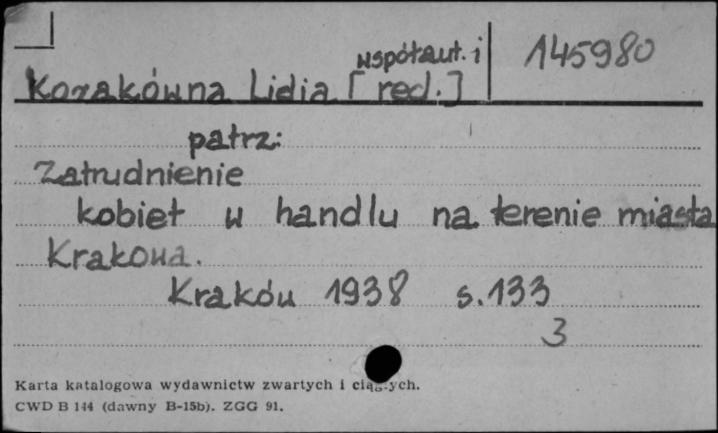 współaut. i 145980
Kozakówna Lidia [red.]
patrz:
Zatrudnienie
kobiet w handlu na terenie miasta
Krakowa.
Kraków 1938 s.133
3
Karta katalogowa wydawnictw zwartych i ciągłych.
CWD B 144 (dawny B-15b). ZGG 91.